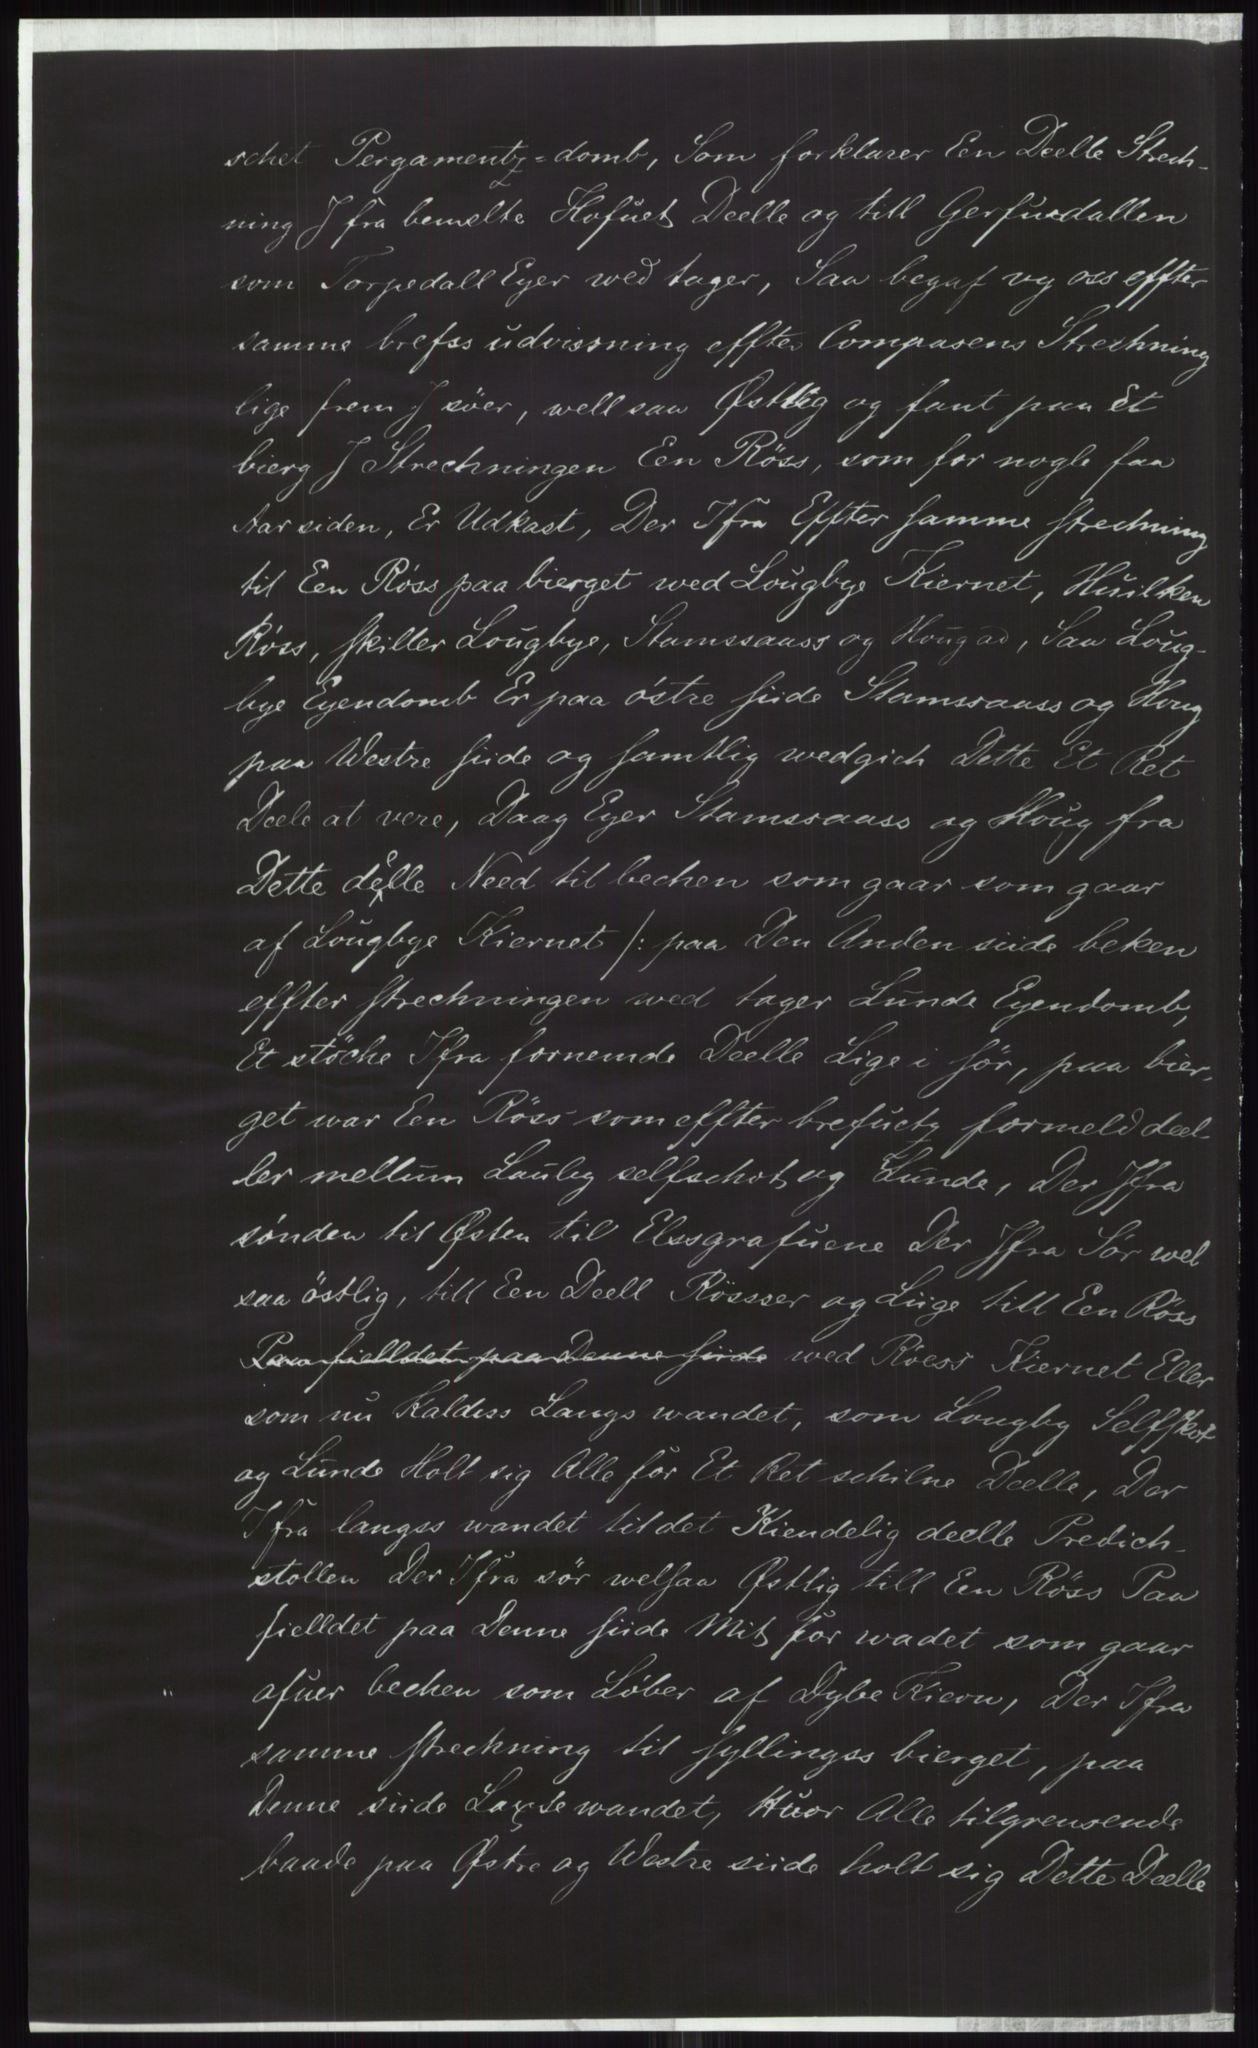 schet Pergamentz=domb, Som forklarer Een Deelle Strech-
ning J fra bemelte Hofuets Deelle og till Gerfuedallen
som Torpedall Eyer wed tager, Saa begaf wy oss effter
samme brefss udvissning effter Compasens Strechning
lige frem J söer, well saa Østlig og fant paa Et
bierg J Strechningen Een Röss, som for nogle faa
Aar siden, Er Udkast, Der Ifra Effter samme strechning
til Een Röss paa bierget wed Lougbye Kiernet, Huilken
Röss, skiller Lougbye, Stamssaass og Hougad, Saa Loug-
bye Eyendomb Er paa östre siide Stamssaass og Houg
paa Westre siide og samtlig wedgich Dette Et Ret
Deele at vere, Daag Eyer Stamssaass og Houg fra
Dette deelle Need til bechen som gaar som gaar
af Lougbye Kiernet /: paa Den Anden siide beken
effter strechningen wed tager Lunde Eyendomb,
Et stöche Ifra fornemde Deelle Lige i sör, paa bier-
get war Een Röss som effter brefuets formeld deel-
ler mellum Lauby selfschot og Lunde, Der Ifra
sönden til Østen til Elssgrafuene Der Ifra Sör wel
saa östlig, till Een Deell Rössser og Liige till Een Röss
Paa fielldet paa Denne siide wed Röess Kiernet Eller
som nu Kaldess Langs wandet, som Lougby Selfskot
og Lunde Holt sig Alle for Et Ret schilne Deelle, Der
Ifra langss wandet til det Kiendelig deelle Predich-
stollen Der Ifra sör welsaa Østlig till Een Röss Paa
fielldet paa Denne siide Mit for wadet som gaar
afuer bechen som Løber af Dybe Kiern, Der Ifra
samme streckning til fyllingss bierget, paa
Denne siide Laxe wandet, Huor Alle tilgrensende
baade paa Østre og Westre siide holt sig Dette Deelle